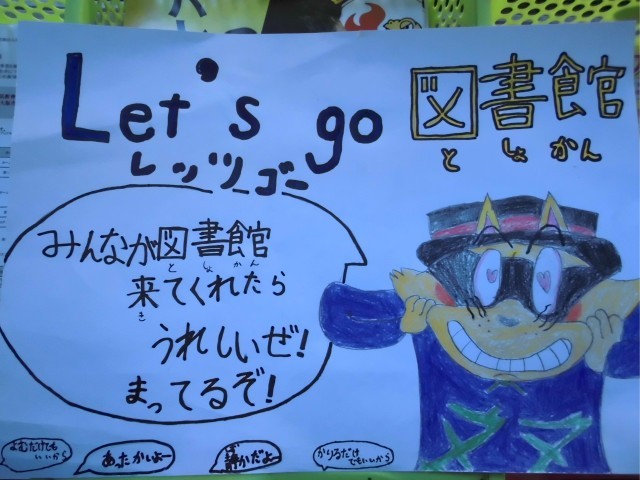 Let's go
レッツゴー
図書館
としょかん
みんなが図書館
としょかん
来てくれたら
き
うれしいぜ!
まってるぞ!
よむだけでも
いいから
あったかいよー
静かだよー
かりるだけ
でもいいから